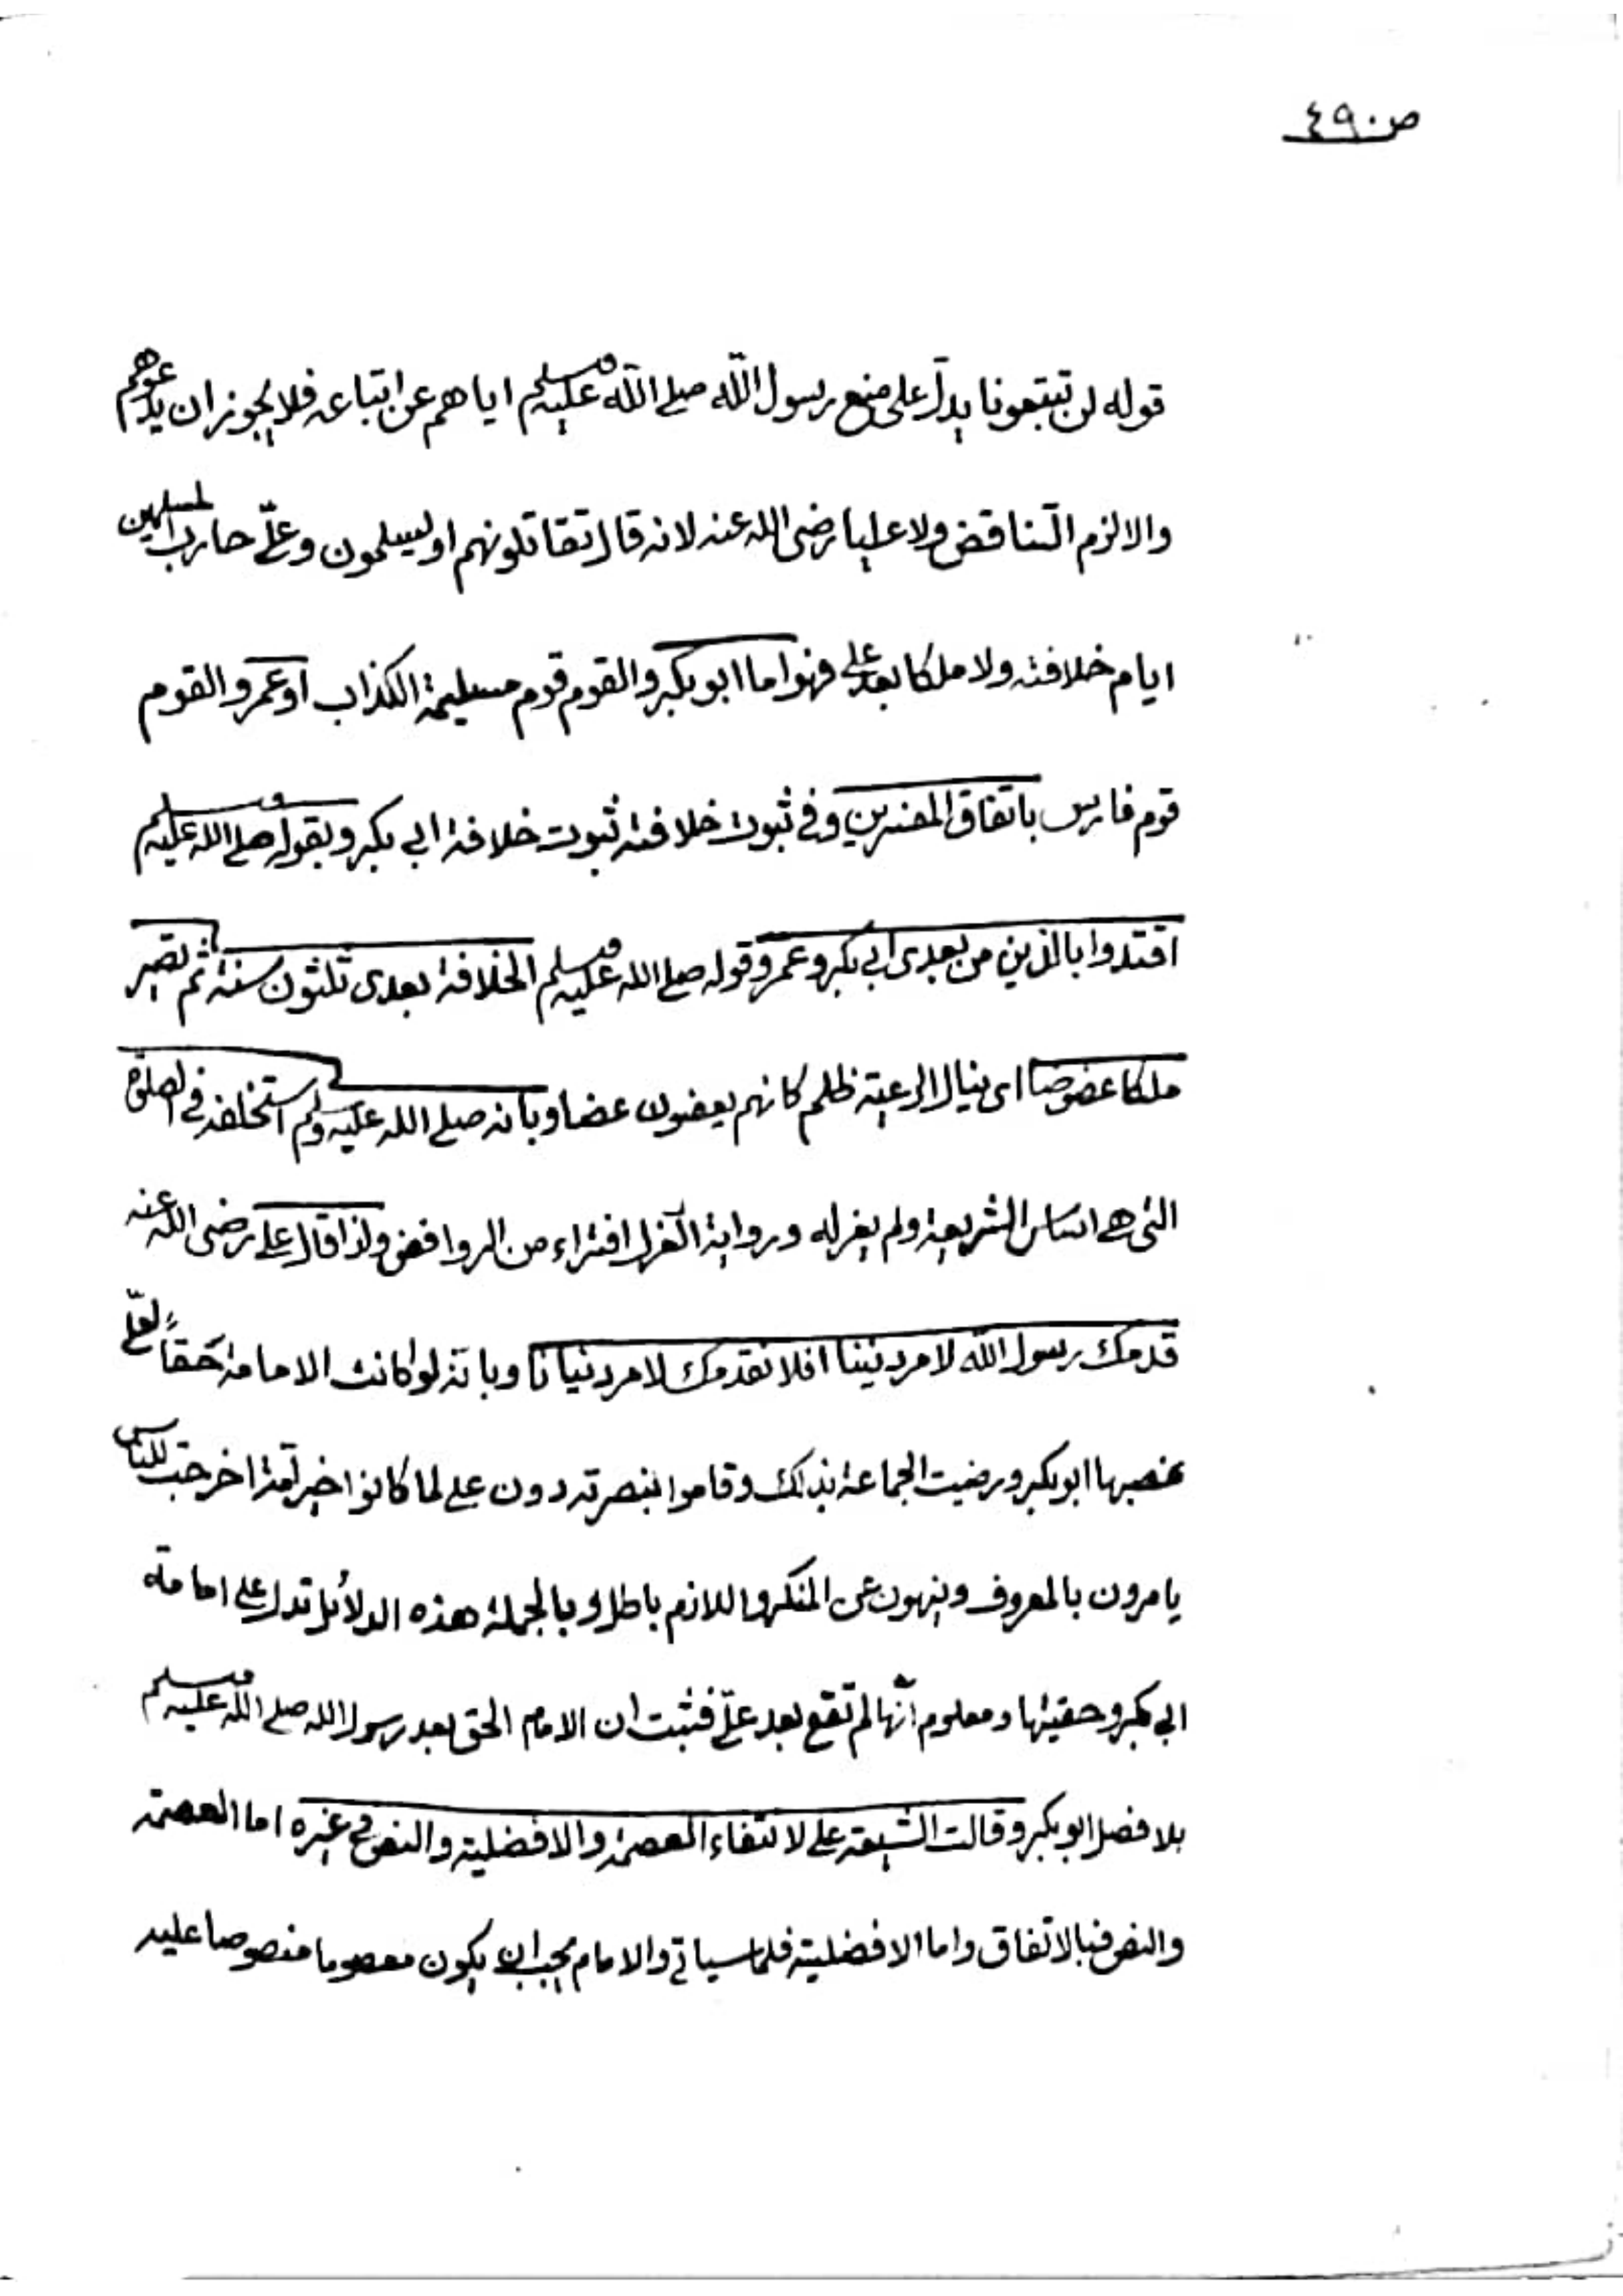 ص ٤٩٠
قوله لن تتبعونا يدل على منع رسول الله صلى الله عليه وسلم اياهم عن اتباعه فلا يجوز ان يدعوهم
والا لزم التناقض ولا عليا رضى الله عنه لانه قال تقاتلونهم او ليسلمون وعلىّ حارب المسلمين
ايام خلافته ولا ملكا بعد على فهو اما ابو بكر والقوم قوم مسيلمة الكذاب او عمر والقوم
قوم فارس باتفاق المفسرين وفى ثبوت خلافته ثبوت خلافة ابى بكر وبقوله صلى الله عليه وسلم
اقتدوا بالذين من بعدى ابى بكر وعمر وقوله صلى الله عليه وسلم الخلافة بعدى ثلثون سنة ثم تصير
ملكا عضوضا اى ينال الرعية ظلم كانهم يعضون عضا وبانه صلى الله عليه وسلم استخلفه فى الصلوة
التى هى اساس الشريعة ولم يعزله ورواية العزل افتراء من الروافض ولذا قال على رضى الله عنه
قدمك رسول الله لامر ديننا افلا نقدمك لامر دنيانا وبانه لو كانت الامامة حقاً لعلىّ
غصبها ابو بكر ورضيت الجماعة بذلك وقاموا بنصرته دون على لما كانوا خير امة اخرجت للناس
يامرون بالمعروف وينهون عن المنكر واللازم باطل وبالجملة هذه الدلائل تدل على امامة
ابى بكر وحقيتها ومعلوم انّها لم تقع بعد علىّ فثبت ان الامام الحق بعد رسول الله صلى الله عليه وسلم
بلا فصل ابو بكر وقالت الشيعة على لانتفاء العصمة والافضلية والنص فى غيره اما العصمة
والنص فبالاتفاق واما الافضلية فلما سياتى والامام يجب ان يكون معصوما منصوصا عليه